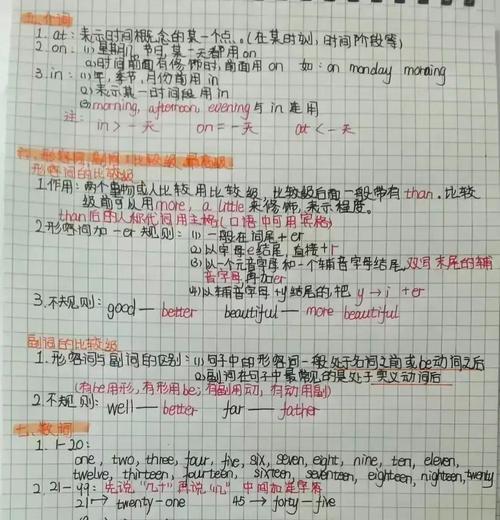 五、介词
1. at: 表示时间概念的某一个点。(在某时刻, 时间阶段等)
2. on: (1)星期几, 节日, 某一天都用 on
(2)时间前面有修饰时, 前面用 on 如: on monday morning
3. in: (1)年, 季节, 月份前用 in
(2)表示某一时间段用 in
(3)morning, afternoon, evening 与 in 连用
注: in > 一天 on = 一天 at < 一天
六、形容词, 副词: 比较级, 最高级
形容词的比较级
1.作用: 两个事物或人比较用比较级, 比较级后面一般带有 than. 比较
级前可以用 more, a little 来修饰, 表示程度。
than后的人称代词用主格(口语中可用宾格)
2.形容词加 -er 规则: (1) 一般在词尾 + er
(2)以字母e结尾, 直接 + r
(3)以一个元音字母和一个辅音字母结尾, 双写末尾的辅
音字母, 再加er
(4)以辅音字母+y结尾的, 把 y → i + er
3. 不规则: good — better beautiful — more beautiful
副词的比较级
1. 形容词与副词的区别: (1)句子中的形容词一般处于名词之前或be动词之后
(2)副词在句子中最常见的是处于实义动词后
(有be用形, 有形用be; 有副用动, 有动用副)
2. 不规则: well — better far — father
七、数词
1. 1-20:
one, two, three, four, five, six, seven, eight, nine, ten, eleven,
twelve, thirteen, fourteen, sixteen, seventeen, eighteen, nighteen, twenty
2. 21-99: 先说“几十”再说“几” 中间加连字符
21 → twenty-one 45 → forty-five